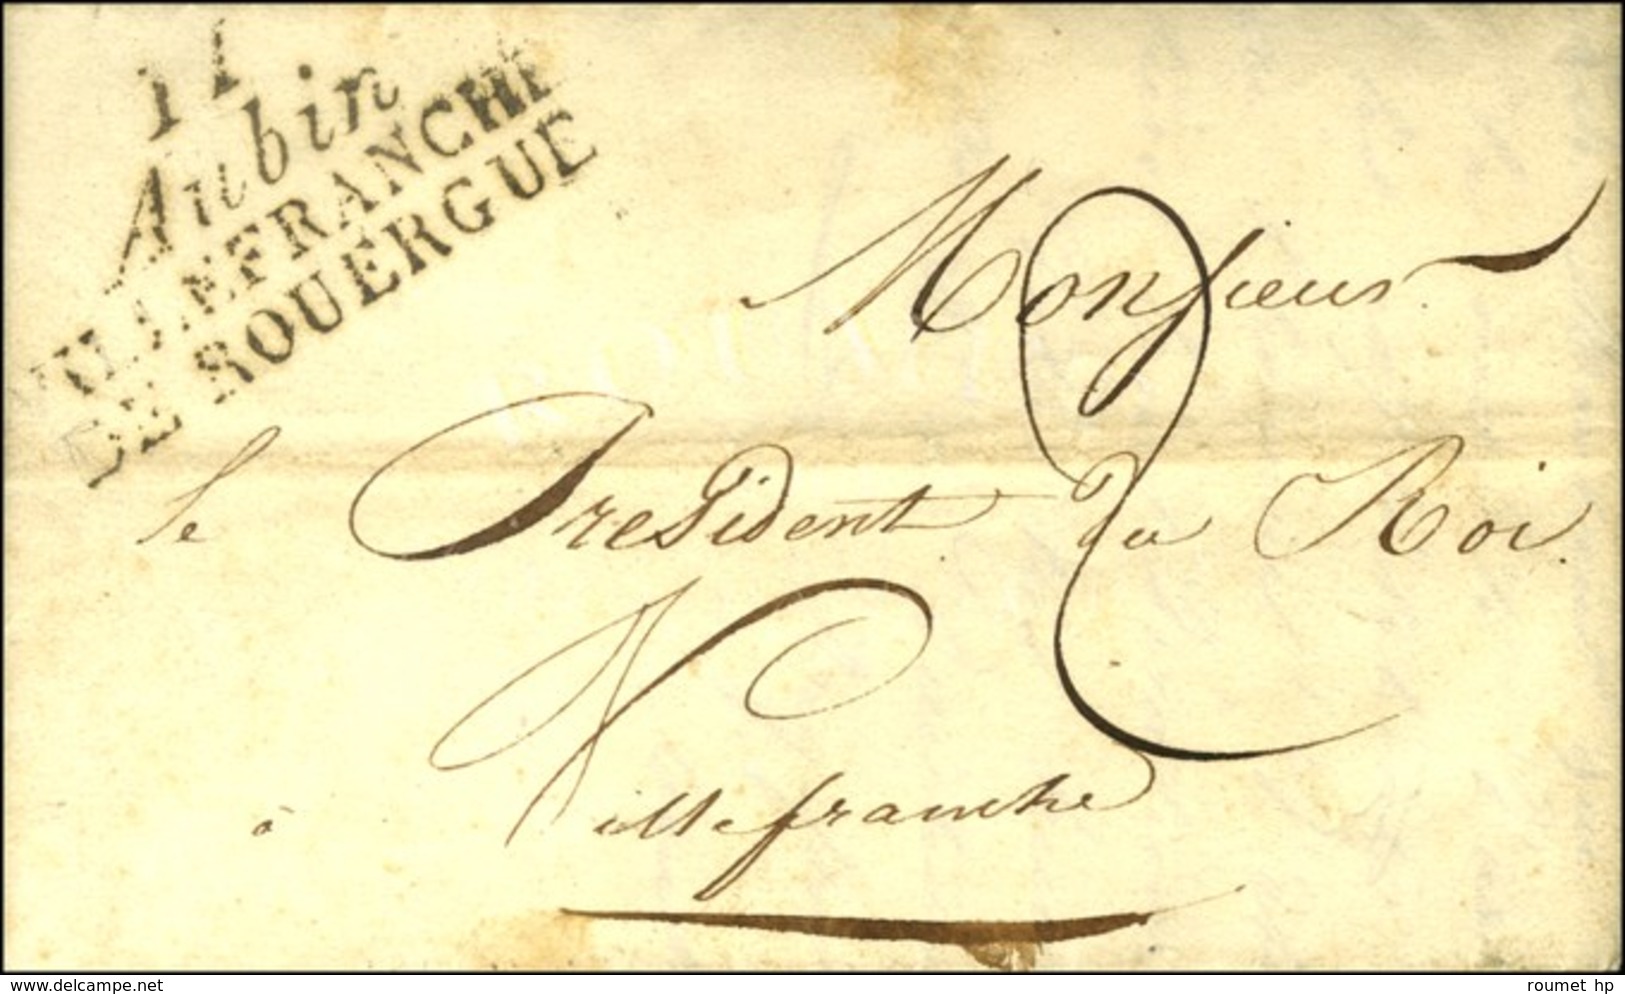 11
Aubin
VILLEFRANCHE
DE ROUERGUE
Monsieur
2
le President du Roi
à Villefranche
www.delcampe.net
roumet hp